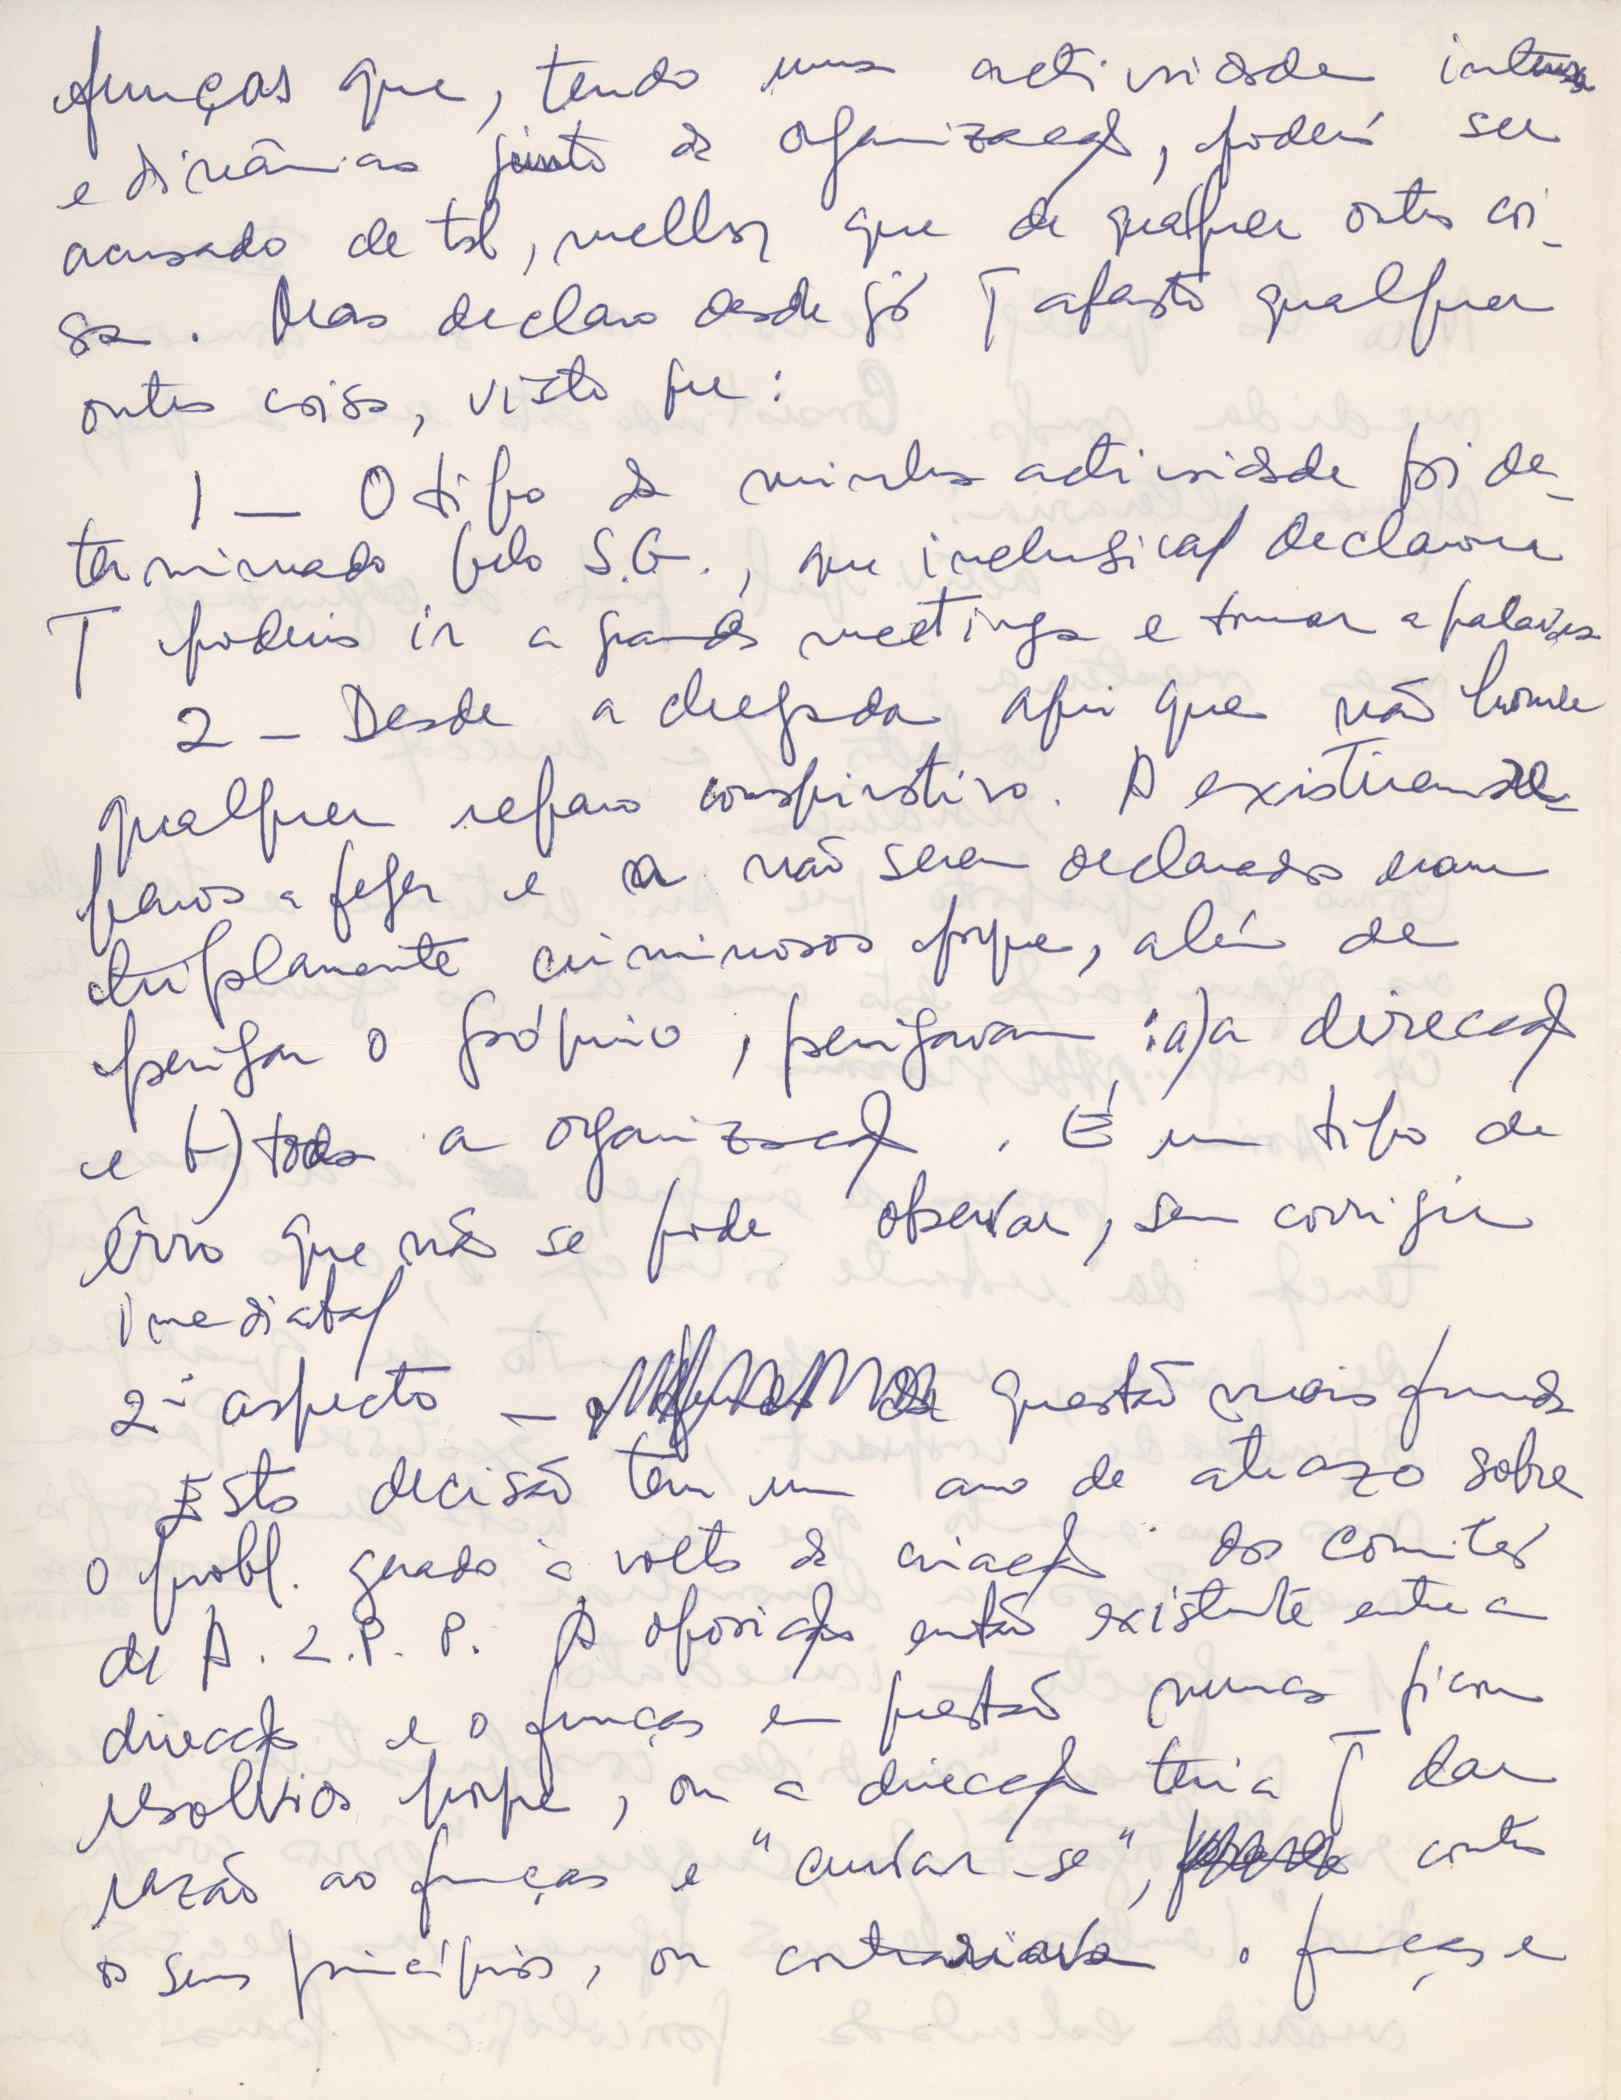 funças que, tendo uma actividade intensa
e dinâmica junto da organizaçaf, poderá ser
acusado de tal, melhor que de qualquer outra coi-
sa. Mas declaro desde já T afasto qualquer
outra coisa, visto que:
1 — O tipo da minha actividade foi de-
terminado pelo S.G., que inclusicaf declarou
T poderia ir a grandes meetings e tomar a palavra
2 — Desde a chegada aqui que não houve
qualquer reparo conspirativo. A existirem re-
paros a fazer e a não serem declarados eram
triplamente criminosos porque, além de
perigar o próprio, perigavam: a) a direcçaf
e b) toda a organizaçaf. É um tipo de
êrro que não se pode observar, sem corrigir
imediataf
2º aspecto — questão mais funda
Esta decisão tem um ano de atrazo sobre
o probl. gerado à volta da criaçaf dos comités
de A.L.P.P. A oposiçaf então existente entre a
direcçaf e o funças em questão nunca ficou
resolvida porque, ou a direcçaf teria T dar
razão ao funças e "curvar-se", contra
os seus princípios, ou contrariava o funças e